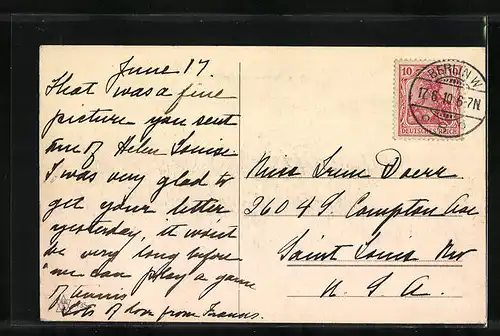 June 17.
That was a fine
picture you sent
me of Helen Louise
I was very glad to
get your letter
yesterday, it wont
be very long before
we can play a game
of tennis
Lots of love from Francis.
Miss Irene Doerr
3604 S. Compton Ave
Saint Louis Mo
U. S. A.
10
DEUTSCHES REICH
BERLIN.W.
17.6.10.6-7N